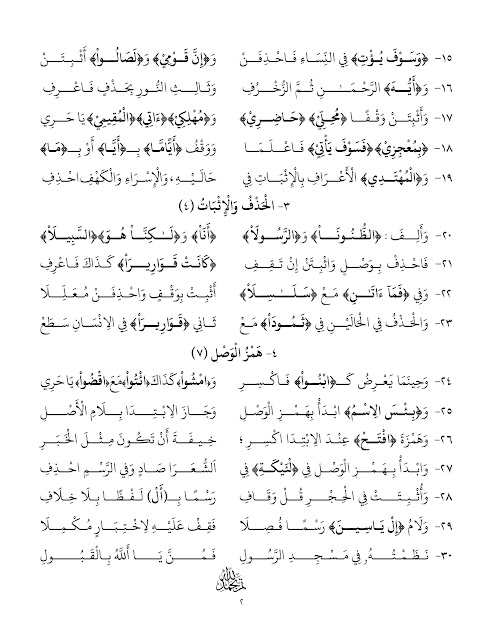 ١٥- ﴿وَسَوْفَ يُؤْتِ﴾ فِي النِّسَاءِ فَاحْذِفَنْ وَ﴿إِنَّ قَوْمِيْ﴾ وَ﴿لَصَالُواْ﴾ أَثْبِتَنْ
١٦- وَ﴿أَيُّهَ﴾ الرَّحْمَـٰنِ ثُمَّ الزُّخْرُفِ وَثَالِثِ النُّورِ بِحَذْفٍ فَاعْرِفِ
١٧- وَأَثْبِتَنْ وَقْفًا ﴿مُحِلِّيْ﴾ ﴿حَاضِرِيْ﴾ وَ﴿مُهْلِكِيْ﴾﴿ءَاتِي﴾﴿الْمُقِيمِيْ﴾ يَا حَرِي
١٨- ﴿بِمُعْجِزِيْ﴾﴿فَسَوْفَ يَأْتِيْ﴾ فَاعْلَمَا وَوَقْفُ ﴿أَيًّامَّا﴾ بِـ﴿أَيًّا﴾ أَوْ بِـ﴿مَا﴾
١٩- وَ﴿الْمُهْتَدِي﴾ الْأَعْرَافِ بِالْإِثْبَاتِ فِي حَالَيْهِ، وَالْإِسْرَاءِ وَالْكَهْفِ احْذِفِ
٣- الْحَذْفُ وَالْإِثْبَاتُ (٤)
٢٠- وَأَلِفَ : ﴿الظُّنُونَاْ﴾ وَ﴿الرَّسُولَاْ﴾ ﴿أَنَاْ﴾ وَ﴿لَـٰكِنَّاْ هُوَ﴾﴿السَّبِيلَاْ﴾
٢١- فَاحْذِفْ بِوَصْلٍ وَاثْبِتَنْ إِنْ تَقِفِ ﴿كَانَتْ قَوَارِيرَاْ﴾ كَذَاكَ فَاعْرِفِ
٢٢- وَفِي ﴿فَمَآ ءَاتَىٰنِ﴾ مَعْ ﴿سَلَـٰسِلَاْ﴾ أَثْبِتْ بِوَقْفٍ وَاحْذِفَنْ مُعَلِّلَا
٢٣- وَالْحَذْفُ فِي الْحَالَيْنِ فِي ﴿ثَمُودَاْ﴾ مَعْ ثَانِي ﴿قَوَارِيرَاْ﴾ فِي الِانْسَانِ سَطَعْ
٤- هَمْزُ الْوَصْلِ (٧)
٢٤- وَحِينَمَا يَعْرِضُ كَـ﴿ابْنُواْ﴾ فَاكْسِرِ وَ﴿امْشُواْ﴾ كَذَاكَ﴿ائْتُواْ﴾مَعَ﴿اقْضُواْ﴾يَا حَرِي
٢٥- وَ﴿بِئْسَ الِاسْمُ﴾ ابْدَأْ بِهَمْزِ الْوَصْلِ وَجَازَ الِابْتِدَا بِلَامِ الْأَصْلِ
٢٦- وَهَمْزَةَ ﴿افْتَحْ﴾ عِنْدَ الِابْتِدَا اكْسِرِ ؛ خِيفَةَ أَنْ تَكُونَ مِثْلَ الْخَبَرِ
٢٧- وَابْدَأْ بِهَمْزِ الْوَصْلِ فِي ﴿لْئَيْكَةِ﴾ فِي اَلشُّعَرَا صَادٍ وَفِي الرَّسْمِ احْذِفِ
٢٨- وَأُثْبِتَتْ فِي الْحِجْرِ قُلْ وَقَافِ رَسْمًا بِـ(أَلْ) لَفْظًا بِلَا خِلَافِ
٢٩- وَلَامُ ﴿إِلْ يَاسِينَ﴾ رَسْمًا فُصِلَا فَقِفْ عَلَيْهِ لِاخْتِبَارٍ مُكْمِلَا
٣٠- نَظَمْتُهُ فِي مَسْجِدِ الرَّسُولِ فَمُنَّ يَا أَللهُ بِالْقَبُولِ
٢